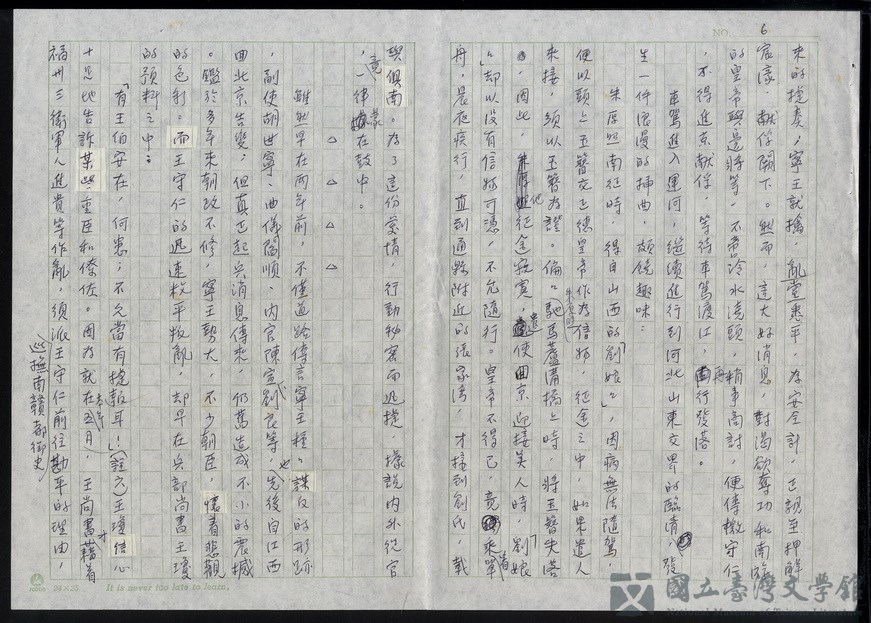 NO. 6
來的捷奏;寧王就擒,亂黨悉平,為安全計,正親至押解
宸濠,獻俘闕下。然而,這大好消息,對渴欲奪功和南旋
的皇帝與邊將等,不啻冷水澆頭,稍事商討,便傳檄守仁
,不得進京獻俘,等待車駕渡江,再行發落。
車駕進入運河,繼續進行到河北山東交界的臨清,發
生一件浪漫的插曲,頗饒趣味:
朱厚照南征時,得自山西的「劉娘」,因病無法隨駕,
便以頭上玉簪交正德皇帝作為信物,征途之中,如果遣人
來接,須以玉簪為證。倫倫馳馬蘆溝橋上時,將玉簪失落
,因此,他征途寂寞,遣使回京迎接美人時,「劉娘
」却以沒有信物可憑,不允隨行。皇帝不得已,竟乘單
舟,晨夜疾行,直到通縣附近的張家灣,才接到劉氏,載
與俱南。為了這份愛情,行動秘密而迅捷,據說內外從官
,竟一律蒙在鼓中。
△ △ △ △
雖然早在兩年前,不僅道路傳言寧王種種謀反的形跡
,副使胡世寧、典儀閻順、內官陳宣、劉良等,也先後自江西
回北京告變,但真正起兵消息傳來,仍舊造成不小的震撼
。鑑於多年來朝政不修,寧王勢大,不少朝臣,懷着悲觀
的色彩。而王守仁的迅速救平叛亂,却早在兵部尚書王瓊
的預料之中:
「有王伯安在,何患;不久當有捷報耳!」(註六)王瓊信心
十足地告訴某些重臣和僚佐。因為就在去年五月,王尚書才藉着
福州三衛軍人進貴等作亂,須派王守仁前往勘平的理由,
巡撫南贛都御史
24×25 It is never too late to learn.
國立臺灣文學館